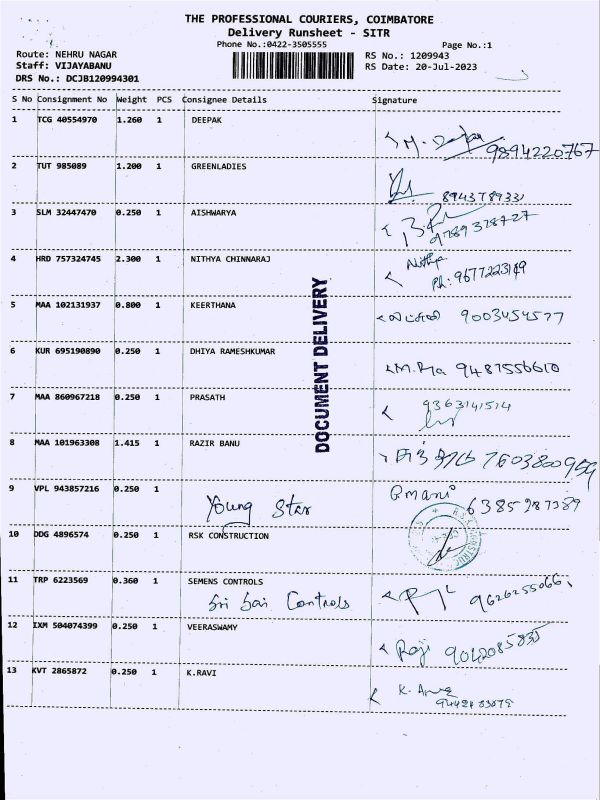 THE PROFESSIONAL COURIERS, COIMBATORE
Delivery Runsheet - SITR
Phone No.:0422-3505555 Page No.:1
Route: NEHRU NAGAR RS No.: 1209943
Staff: VIJAYABANU RS Date: 20-Jul-2023
DRS No.: DCJB120994301
S No Consignment No Weight PCS Consignee Details Signature
1 TCG 40554970 1.260 1 DEEPAK
9894220767
2 TUT 985089 1.200 1 GREENLADIES
3 SLM 32447470 0.250 1 AISHWARYA
9789378727
4 HRD 757324745 2.300 1 NITHYA CHINNARAJ Nithya
Ph: 9677223149
5 MAA 102131937 0.800 1 KEERTHANA
9003454577
6 KUR 695190890 0.250 1 DHIYA RAMESHKUMAR
9487556610
7 MAA 860967218 0.250 1 PRASATH
9363141514
8 MAA 101963308 1.415 1 RAZIR BANU
7603800959
9 VPL 943857216 0.250 1
Young Star 6385287389
10 DDG 4896574 0.250 1 RSK CONSTRUCTION
11 TRP 6223569 0.360 1 SEMENS CONTROLS
Sri Sai Controls 9626255066
12 IXM 504074399 0.250 1 VEERASWAMY
Raji 9042085835
13 KVT 2865872 0.250 1 K.RAVI
DOCUMENT DELIVERY